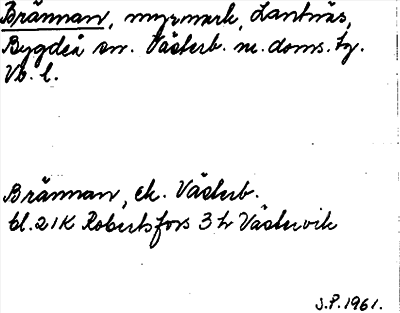 Brännan, myrmark, Lantnäs,
Bygdeå sn. Västerb. n. doms. tg.
Vb. l.
Brännan, ek. Västerb.
bl. 21K Robertsfors 3 h Västervik
S.P. 1961.